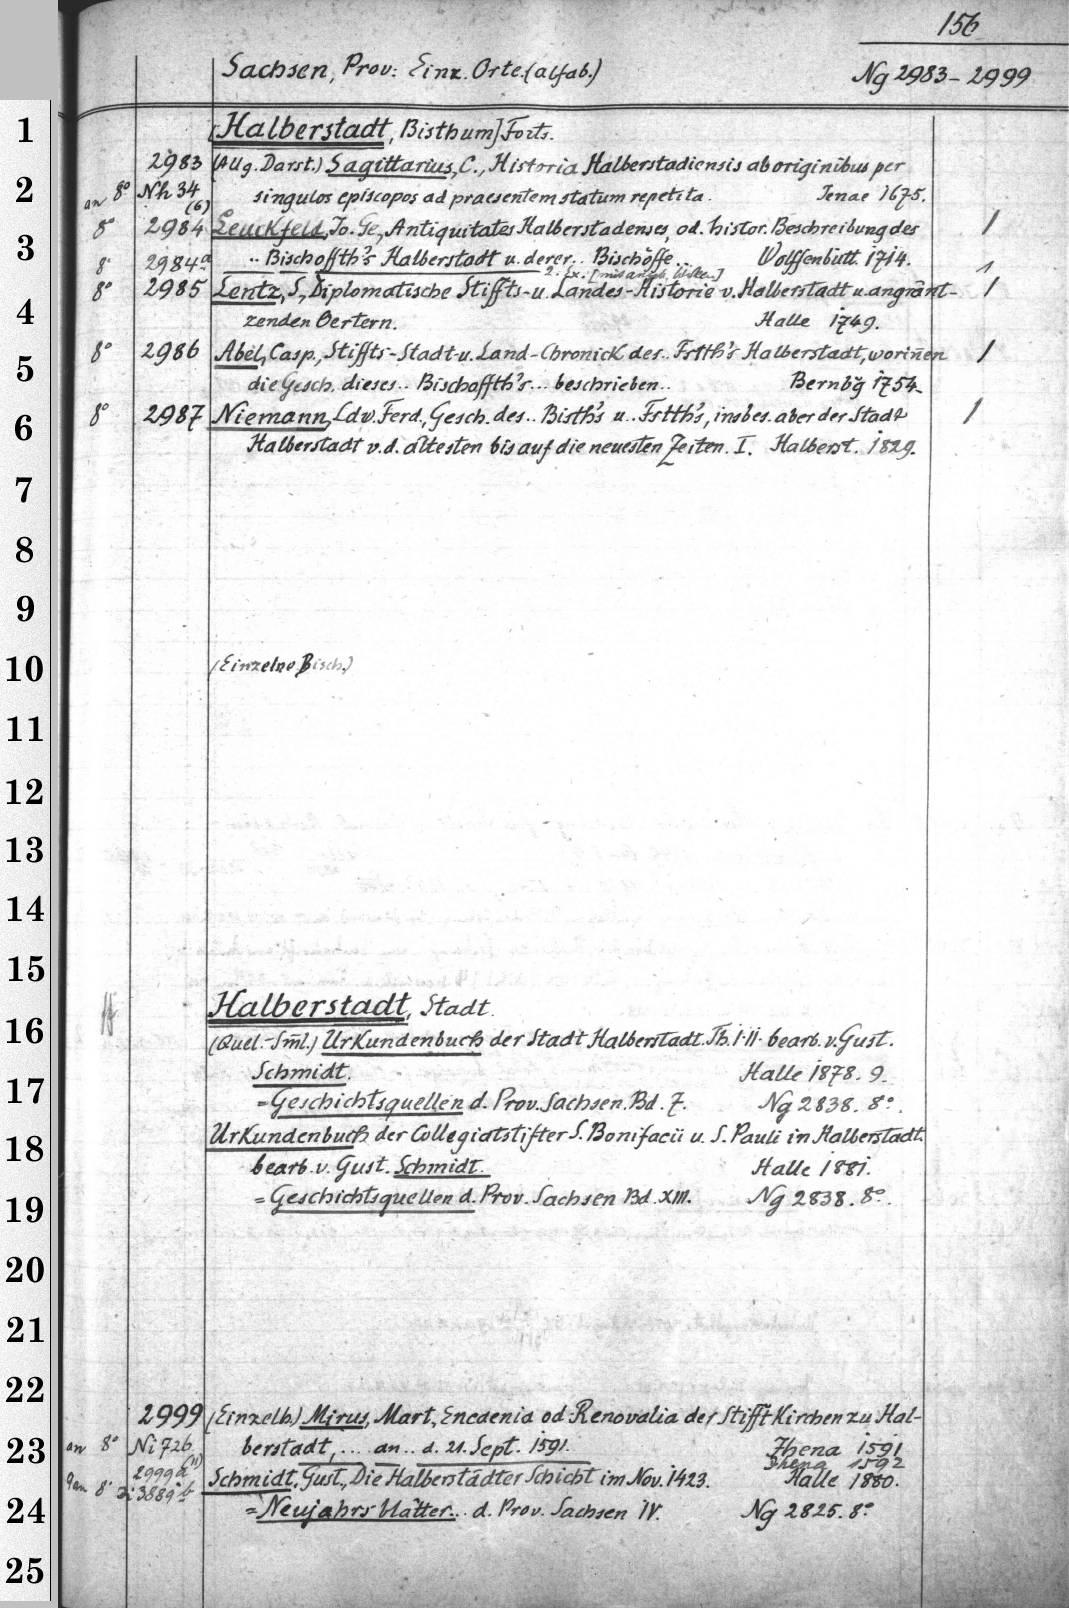 156
Sachsen, Prov: Einz. Orte. (alfab.) Ng 2983 - 2999
1
[Halberstadt, Bisthum] Forts.
2983 (Allg. Darst.) Sagittarius, C., Historia Halberstadiensis ab originibus per
2
an 8° Nh 34 (6) singulos episcopos ad praesentem statum repetita. Jenae 1675.
8° 2984 Leuckfeld, Jo. Ge., Antiquitates Halberstadenses, od. histor. Beschreibung des /
3
8° 2984a .. Bischoffth's Halberstadt u. derer .. Bischöffe .. Wolffenbütt. 1714. 1
2. Ex. [mit
8° 2985 Lentz, S., Diplomatische Stiffts- u. Landes-Historie v. Halberstadt u. angränt- /
4
zenden Oertern. Halle 1749.
8° 2986 Abel, Casp., Stiffts-Stadt-u. Land-Chronick des .. Fstth's Halberstadt, woriñen /
5
die Gesch. dieses .. Bischoffth's ... beschrieben .. Bernb'g 1754.
8° 2987 Niemann, Ldw. Ferd., Gesch. des .. Bisth's u. Fstth's, insbes. aber der Stadt /
6
Halberstadt v. d. ältesten bis auf die neuesten Zeiten. I. Halberst. 1829.
7
8
9
10 (Einzelne Bisch.)
11
12
13
14
15
Halberstadt, Stadt.
16
(Quel.-Sml.) Urkundenbuch der Stadt Halberstadt. Th. I-II. bearb. v. Gust.
Schmidt. Halle 1878. 9.
17
= Geschichtsquellen d. Prov. Sachsen. Bd. 7. Ng 2838. 8°.
Urkundenbuch der Collegiatstifter S. Bonifacii u. S. Pauli in Halberstadt.
18
bearb. v. Gust. Schmidt. Halle 1881.
= Geschichtsquellen d. Prov. Sachsen Bd. XIII. Ng 2838. 8°.
19
20
21
22
2999 (Einzelh.) Mirus, Mart., Encaenia od Renovalia der Stifft Kirchen zu Hal-
23
an 8° Ni 726 (11) berstadt, .... an .. d. 21. Sept. 1591. Jhena 1591
2999a Jhena 1592
an 8° Schmidt, Gust., Die Halberstädter Schicht im Nov. 1423. Halle 1880.
24
= Neujahrsblätter .. d. Prov. Sachsen IV. Ng 2825. 8°
25